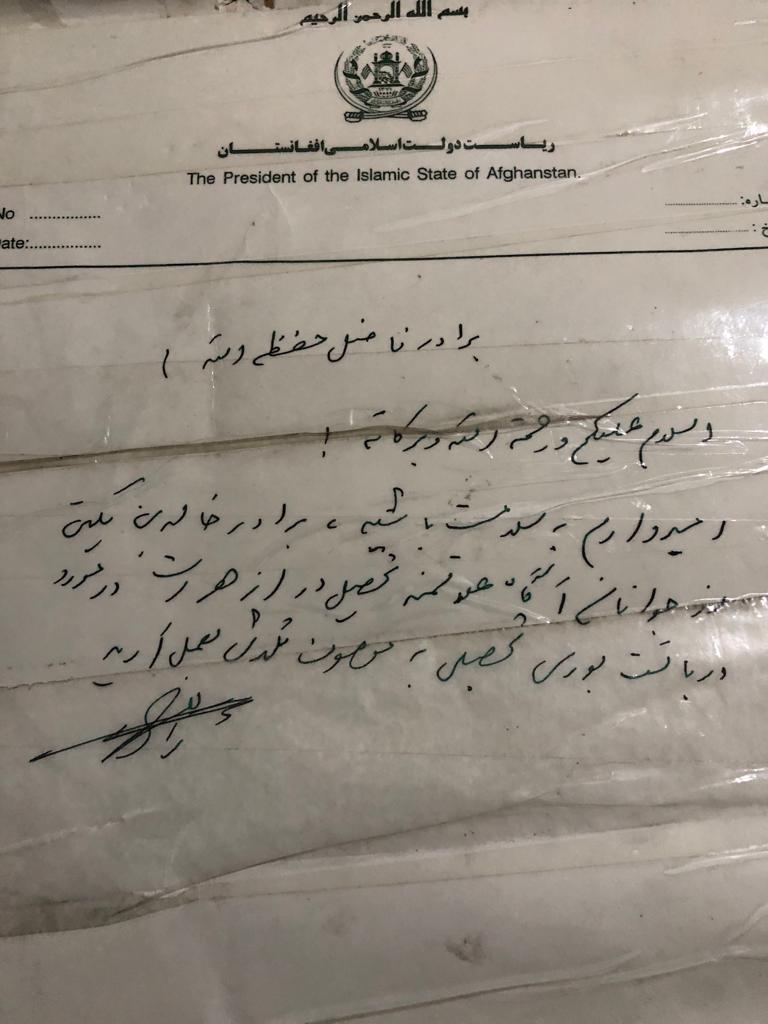 بسم الله الرحمن الرحیم
ریاست دولت اسلامی افغانستان
The President of the Islamic State of Afghanstan.
No ................
اره: ................
Date:................
خ : ................
برادر فاضل حفظه الله !
السلام علیکم ورحمة الله وبرکاته !
امیدوارم به سلامت باشید ، برادر خالد یکتن
از جوانان آگاه علاقمند تحصیل در از هر است در مورد
دریافت بورس تحصیلی به موصوف کمک بعمل آرید